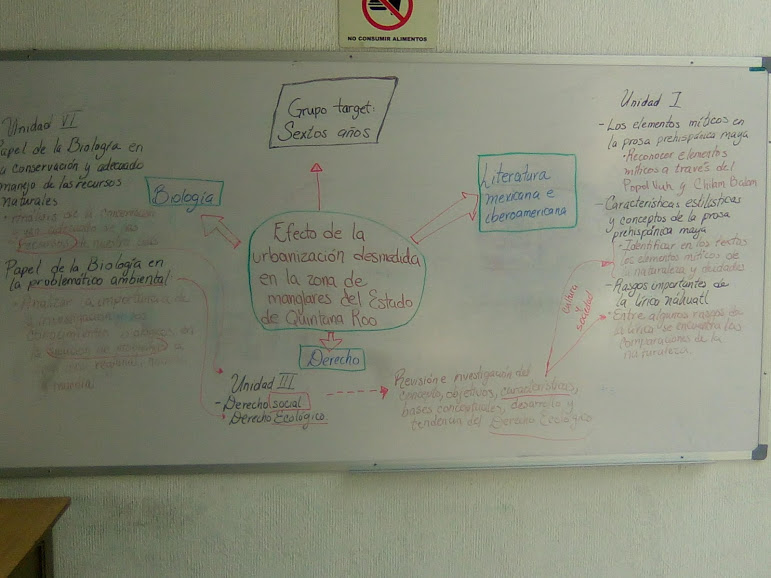 NO CONSUMIR ALIMENTOS
Grupo target:
Sextos años
Unidad VI
Papel de la Biología en
a conservación y adecuado
manejo de las recursos
naturales
Recursos de nuestro país
Papel de la Biología en
la problemática ambiental
Analizar a importancia de
Biología
Efecto de la
urbanización desmedida
en la zona de
manglares del Estado
de Quintana Roo
Literatura
mexicana e
iberoamericana
Derecho
Unidad III
- Derecho social.
Derecho Ecológico.
Revisión e investigación del
concepto, objetivos, características,
bases conceptuales, desarrollo y
del Derecho Ecológico
Cultura
Sociedad
Unidad I
- Los elementos míticos en
la prosa prehispánica maya
• Reconocer elementos
míticos a través del
Popol Vuh y Chilam Balam
- Características estilísticas
y conceptos de la prosa
prehispánica maya
• Identificar en los textos
los elementos míticos de
naturaleza y deidades
- Rasgos importantes de
la lírica náhuatl
• Entre algunos rasgos de
la lírica se encuentra las
comparaciones de la
naturaleza.